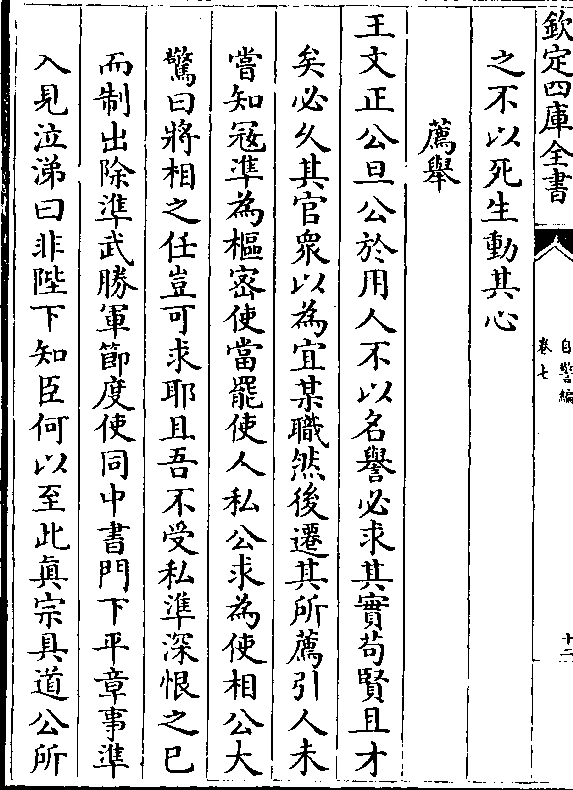 欽定四庫全書
自警編
卷七
十二
之不以死生動其心
薦舉
王文正公旦公於用人不以名譽必求其實苟賢且才
矣必久其官衆以為宜某職然後遷其所薦引人未
嘗知冦準為樞密使當罷使人私公求為使相公大
驚曰將相之任豈可求耶且吾不受私準深恨之已
而制出除準武勝軍節度使同中書門下平章事準
入見泣涕曰非陛下知臣何以至此真宗具道公所